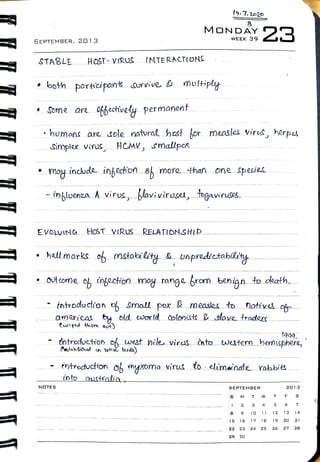 14.7.2020
8
MONDAY 23
WEEK 39
SEPTEMBER, 2013
STABLE HOST-VIRUS INTERACTIONS
• both participants survive & multiply
• Some are effectively permanent
- humans are sole natural host for measles virus, herpes
simplex virus, HCMV, smallpox
• may include infection of more than one species
- influenza A virus, flaviviruses, togaviruses.
EVOLVING HOST VIRUS RELATIONSHIP
• hall marks of instability & unpredictability
• Outcome of infection may range from benign to death.
- introduction of small pox & measles to natives of
americas by old world colonists & slave traders
(wiped them out)
1999
- introduction of west nile virus into western hemisphere,
- introduction of myxoma virus to eliminate rabbits
into australia.
NOTES
SEPTEMBER 2013
S M T W T F S
1 2 3 4 5 6 7
8 9 10 11 12 13 14
15 16 17 18 19 20 21
22 23 24 25 26 27 28
29 30